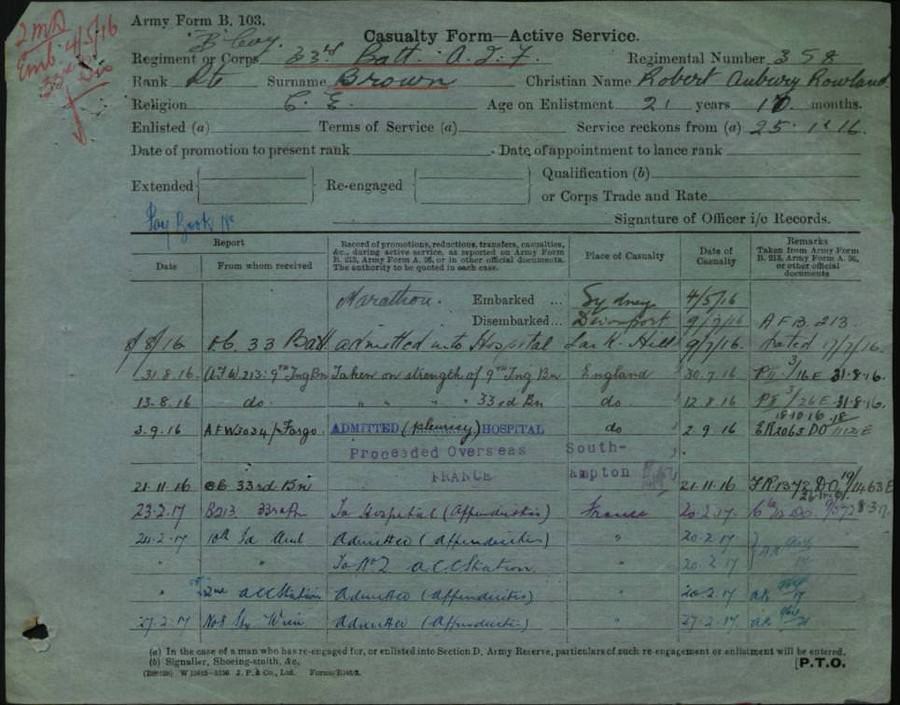 Army Form B. 103.
2 MD
Emb. 4/5/16
33rd Bn
Casualty Form—Active Service.
B Coy.
Regiment or Corps 33rd Batt. A.I.F. Regimental Number 358
Rank Pte Surname Brown Christian Name Robert Aubury Rowland
Religion C. E. Age on Enlistment 21 years 10 months.
Enlisted (a) Terms of Service (a) Service reckons from (a) 25.1.16.
Date of promotion to present rank Date of appointment to lance rank
Extended Re-engaged Qualification (b)
or Corps Trade and Rate
Pay Book No
Signature of Officer i/c Records.
Report
Date From whom received
Record of promotions, reductions, transfers, casualties, &c., during active service, as reported on Army Form B. 213, Army Form A. 36, or in other official documents. The authority to be quoted in each case.
Place of Casualty
Date of Casualty
Remarks
Taken from Army Form B. 213, Army Form A. 36, or other official documents
Marathon. Embarked ... Sydney 4/5/16
Disembarked... Devonport 9/7/16 A F B. 213
8/8/16 33 Batt admitted into Hospital Lark Hill 9/7/16. dated 17/7/16.
31.8.16 213: 9th Tng Bn Taken on strength of 9th Tng Bn England 30.7.16 31.8.16.
13.8.16 do. " " " " 33rd Bn do 12.8.16 31.8.16.
3.9.16 AFW3034 Fargo. ADMITTED (pleurisy) HOSPITAL do 2.9.16
Proceeded Overseas South-
FRANCE ampton
21.11.16 33rd Bn 21.11.16
23.2.17 B213 33rd Bn To Hospital (Appendicitis) France 20.2.17
24.2.17 10th Fd Amb Admitted (appendicitis) " 20.2.17
" To No 2 A C C Station " 20.2.17
" 2nd A C C Station Admitted (appendicitis) " 20.2.17
27.2.17 Admitted (Appendicitis) " 27.2.17
(a) In the case of a man who has re-engaged for, or enlisted into Section D, Army Reserve, particulars of such re-engagement or enlistment will be entered.
(b) Signaller, Shoeing-smith, &c.
[P.T.O.
J. P. & Co., Ltd.